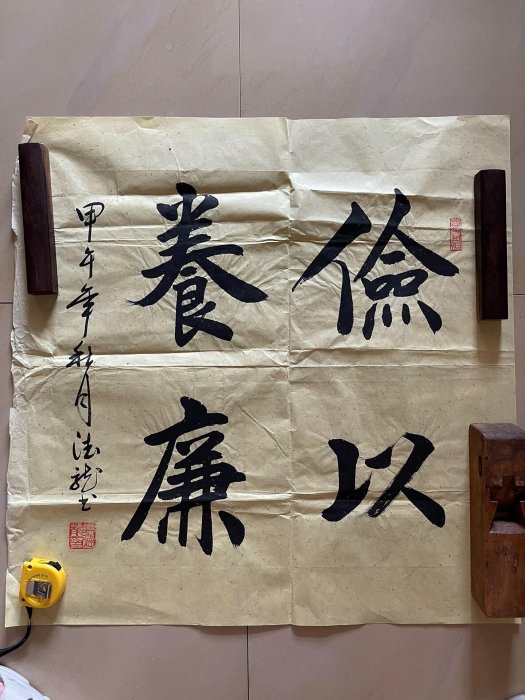 儉以
養廉
甲午年秋月法龍书